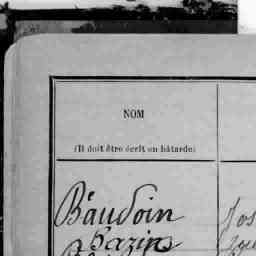 NOM
(Il doit être écrit en bâtarde)
Baudoin Jos
Bazin